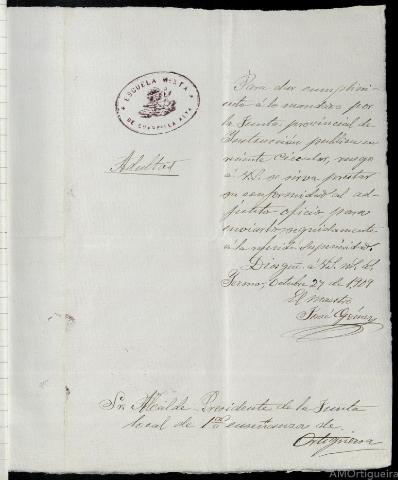 ESCUELA MIXTA
Adultos
Para dar cumplimi-
ento á lo mandado por
la Junta provincial de
Instrucción pública en
reciente circular, ruego
á Vd. se sirva prestar
su conformidad al ad-
junto oficio para
enviarlo seguidamente
á la referida Superioridad.
Dios gue. á Vd. m. a.
Octubre 27 de 1909
El Maestro
José Gómez
Sr. Alcalde Presidente de la Junta
local de 1ra enseñanza de
Ortigueira
AMOrtigueira